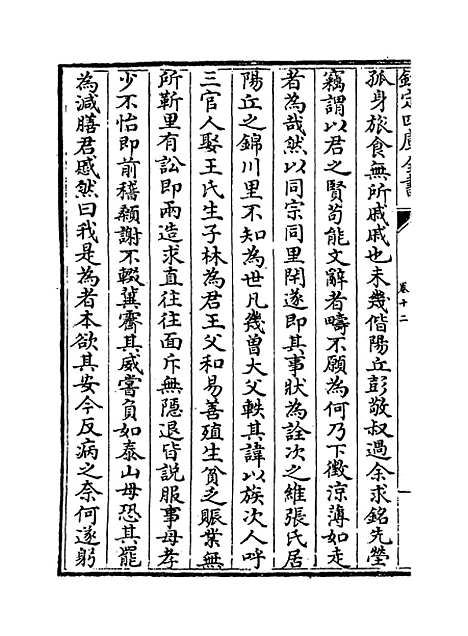 欽定四庫全書
卷十二
孤身旅食無所戚戚也未幾偕陽丘彭敬叔過余求銘先塋
竊謂以君之賢茍能文辭者疇不願為何乃下徵涼薄如走
者為哉然以同宗同里閈遂即其事狀為詮次之維張氏居
陽丘之錦川里不知為世凡幾曽大父軼其諱以族次人呼
三官人娶王氏生子林為君王父和易善殖生貧乏賑業無
所靳里有訟即兩造求直往往面斥無隠退皆説服事母孝
少不怡即前稽顙謝不輟冀霽其威嘗負如泰山母恐其罷
為減膳君慼然曰我是為者本欲其安今反病之奈何遂躬